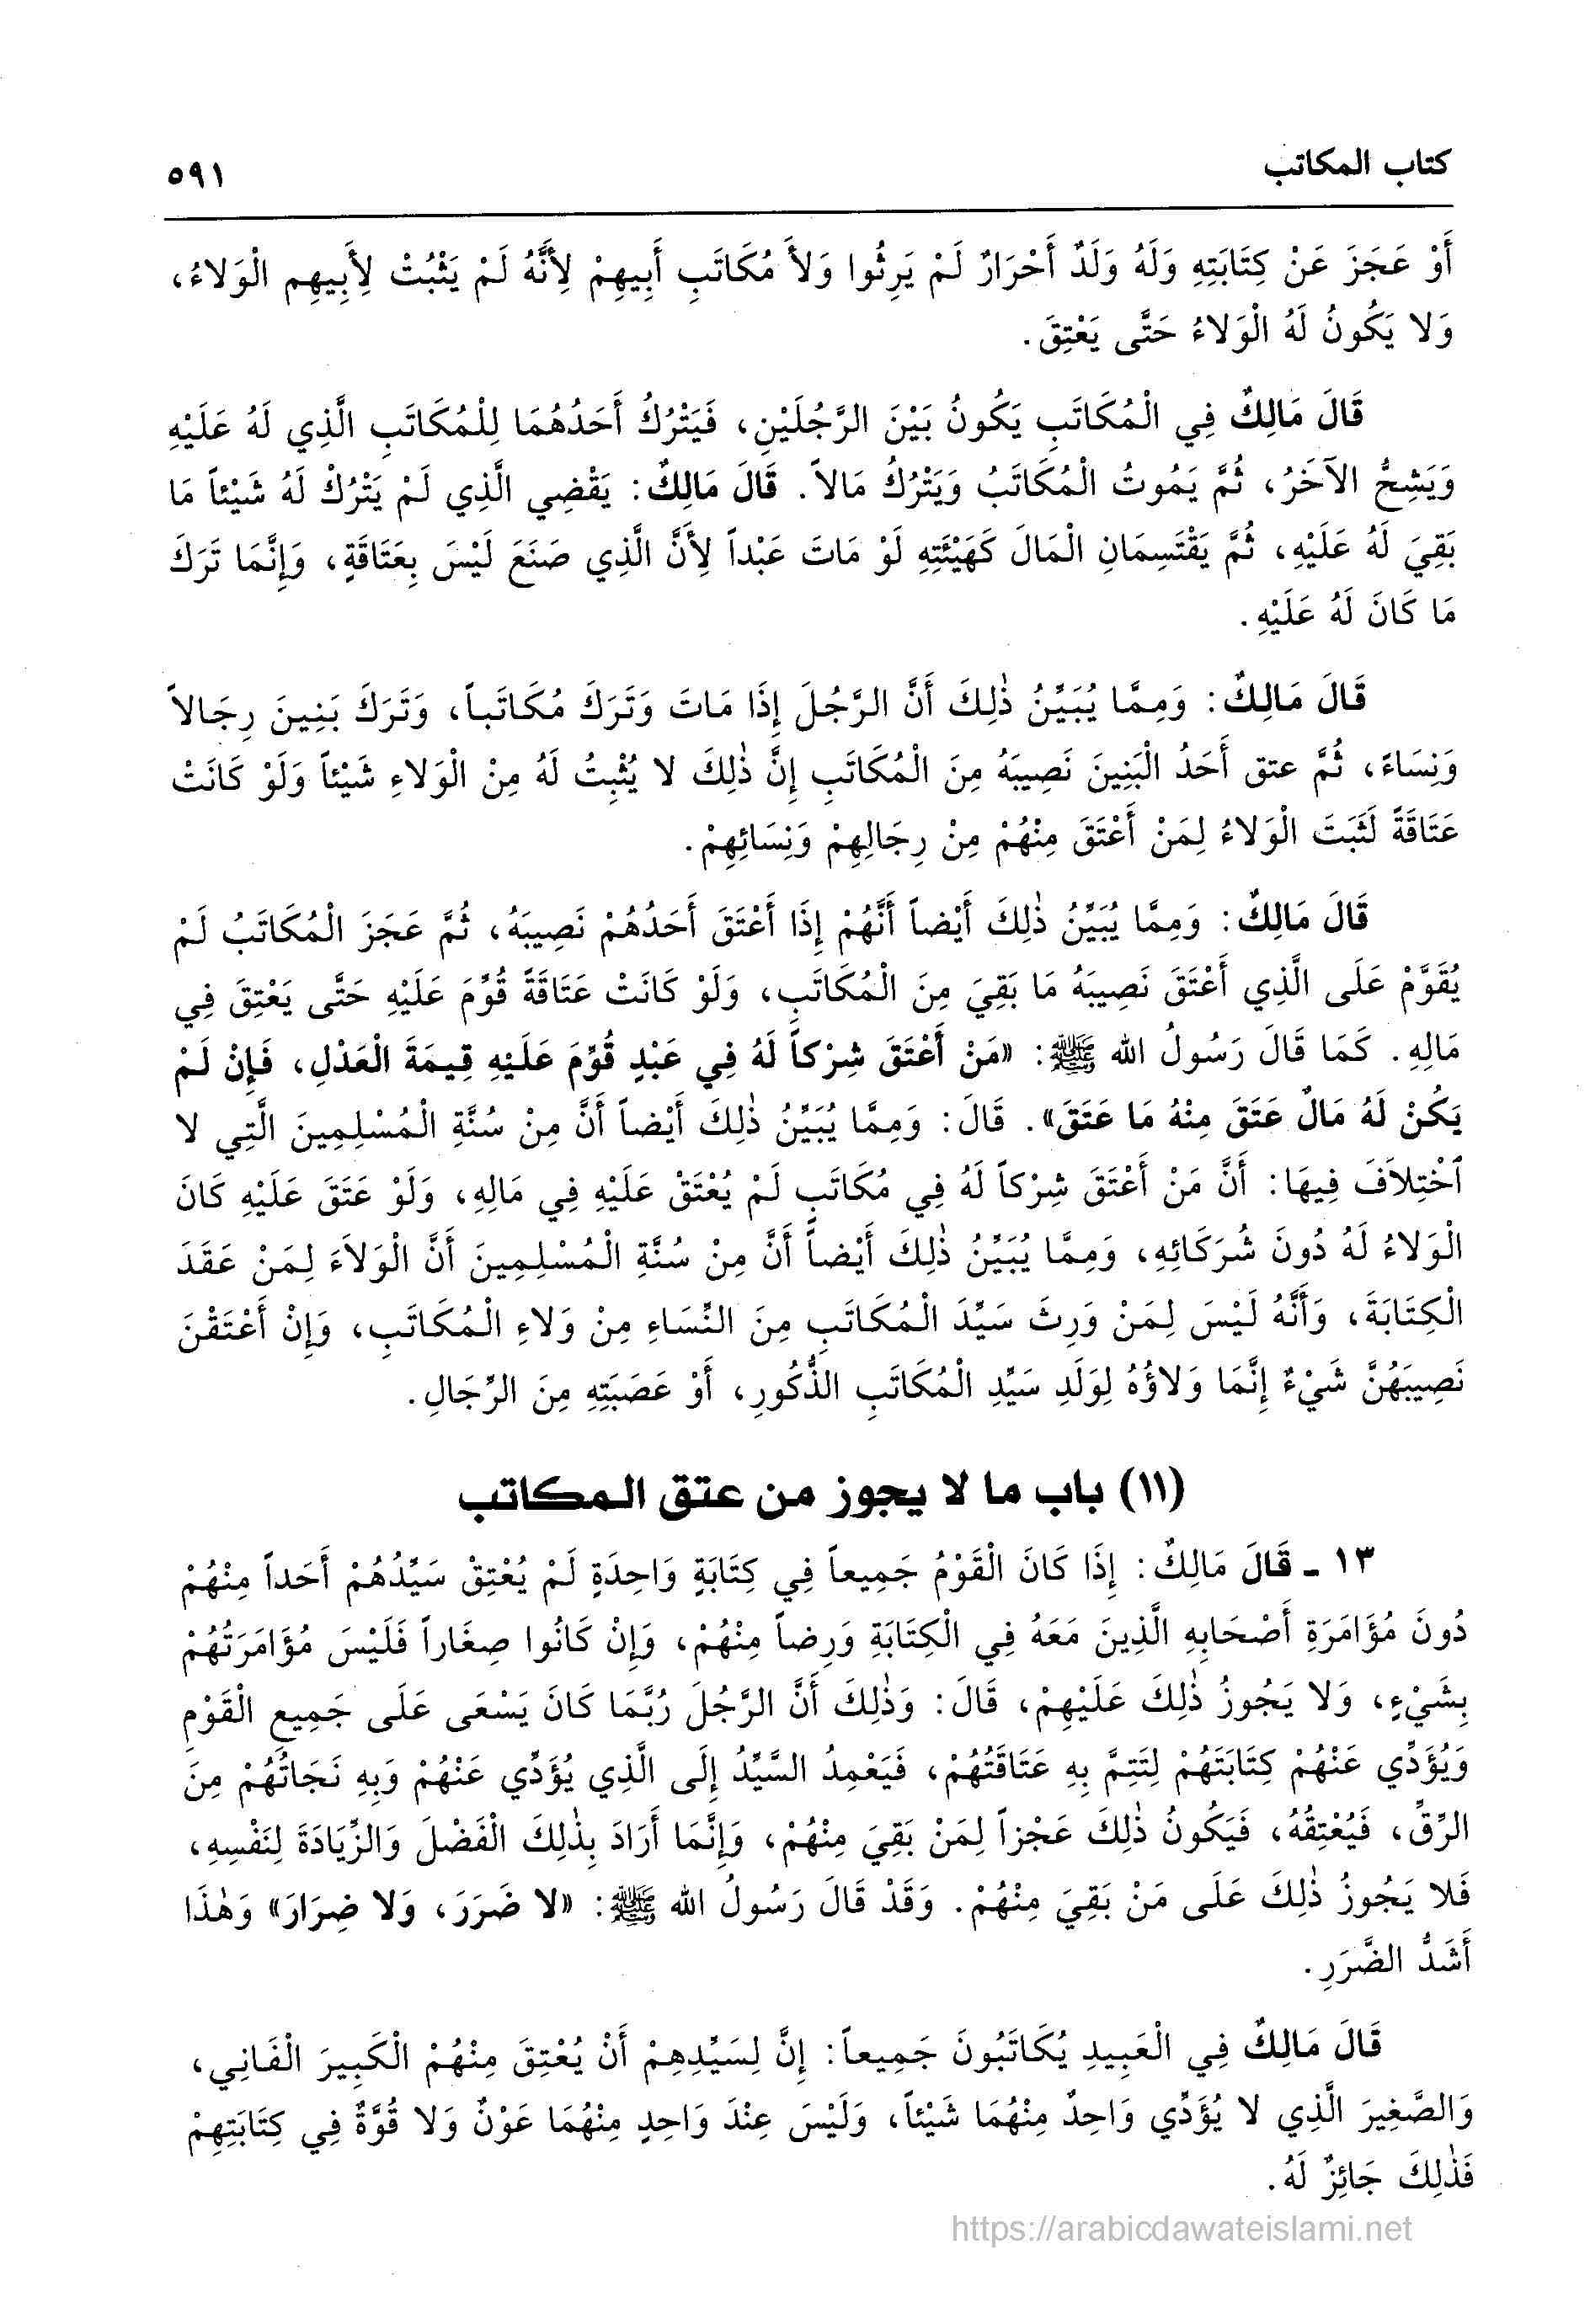 كتاب المكاتب
٥٩١
أَوْ عَجَزَ عَنْ كِتَابَتِهِ وَلَهُ وَلَدٌ أَحْرَارٌ لَمْ يَرِثُوا وَلَأَ مُكَاتَبِ أَبِيهِمْ لِأَنَّهُ لَمْ يَثْبُتْ لِأَبِيهِم الْوَلاءُ،
وَلا يَكُونُ لَهُ الْوَلاءُ حَتَّى يَعْتِقَ.
قَالَ مَالِكٌ فِي الْمُكَاتَبِ يَكُونُ بَيْنَ الرَّجُلَيْنِ، فَيَتْرُكُ أَحَدُهُمَا لِلْمُكَاتَبِ الَّذِي لَهُ عَلَيْهِ
وَيَشِحُّ الآخَرُ، ثُمَّ يَمُوتُ الْمُكَاتَبُ وَيَتْرُكُ مَالاً. قَالَ مَالِكٌ: يَقْضِي الَّذِي لَمْ يَتْرُكْ لَهُ شَيْئاً مَا
بَقِيَ لَهُ عَلَيْهِ، ثُمَّ يَقْتَسِمَانِ الْمَالَ كَهَيْئَتِهِ لَوْ مَاتَ عَبْداً لِأَنَّ الَّذِي صَنَعَ لَيْسَ بِعَتَاقَةٍ، وَإِنَّمَا تَرَكَ
مَا كَانَ لَهُ عَلَيْهِ.
قَالَ مَالِكٌ: وَمِمَّا يُبَيِّنُ ذٰلِكَ أَنَّ الرَّجُلَ إِذَا مَاتَ وَتَرَكَ مُكَاتَباً، وَتَرَكَ بَنِينَ رِجَالاً
وَنِسَاءً، ثُمَّ عتق أَحَدُ الْبَنِينَ نَصِيبَهُ مِنَ الْمُكَاتَبِ إِنَّ ذٰلِكَ لا يُثْبِتُ لَهُ مِنْ الْوَلاءِ شَيْئاً وَلَوْ كَانَتْ
عَتَاقَةً لَثَبَتَ الْوَلاءُ لِمَنْ أَعْتَقَ مِنْهُمْ مِنْ رِجَالِهِمْ وَنِسَائِهِمْ.
قَالَ مَالِكٌ: وَمِمَّا يُبَيِّنُ ذٰلِكَ أَيْضاً أَنَّهُمْ إِذَا أَعْتَقَ أَحَدُهُمْ نَصِيبَهُ، ثُمَّ عَجَزَ الْمُكَاتَبُ لَمْ
يُقَوَّمْ عَلَى الَّذِي أَعْتَقَ نَصِيبَهُ مَا بَقِيَ مِنَ الْمُكَاتَبِ، وَلَوْ كَانَتْ عَتَاقَةً قُوِّمَ عَلَيْهِ حَتَّى يَعْتِقَ فِي
مَالِهِ. كَمَا قَالَ رَسُولُ الله ﷺ: «مَنْ أَعْتَقَ شِرْكاً لَهُ فِي عَبْدٍ قُوِّمَ عَلَيْهِ قِيمَةَ الْعَدْلِ، فَإِنْ لَمْ
يَكُنْ لَهُ مَالٌ عَتَقَ مِنْهُ مَا عَتَقَ». قَالَ: وَمِمَّا يُبَيِّنُ ذٰلِكَ أَيْضاً أَنَّ مِنْ سُنَّةِ الْمُسْلِمِينَ الَّتِي لا
ٱخْتِلاَفَ فِيهَا: أَنَّ مَنْ أَعْتَقَ شِرْكاً لَهُ فِي مُكَاتَبٍ لَمْ يُعْتَقْ عَلَيْهِ فِي مَالِهِ، وَلَوْ عَتَقَ عَلَيْهِ كَانَ
الْوَلاءُ لَهُ دُونَ شُرَكَائِهِ، وَمِمَّا يُبَيِّنُ ذٰلِكَ أَيْضاً أَنَّ مِنْ سُنَّةِ الْمُسْلِمِينَ أَنَّ الْوَلاَءَ لِمَنْ عَقَدَ
الْكِتَابَةَ، وَأَنَّهُ لَيْسَ لِمَنْ وَرِثَ سَيِّدَ الْمُكَاتَبِ مِنَ النِّسَاءِ مِنْ وَلاءِ الْمُكَاتَبِ، وَإِنْ أَعْتَقْنَ
نَصِيبَهُنَّ شَيْءٌ إِنَّمَا وَلاؤُهُ لِوَلَدِ سَيِّدِ الْمُكَاتَبِ الذُّكُورِ، أَوْ عَصَبَتِهِ مِنَ الرِّجَالِ.
(١١) باب ما لا يجوز من عتق المكاتب
١٣ - قَالَ مَالِكٌ: إِذَا كَانَ الْقَوْمُ جَمِيعاً فِي كِتَابَةٍ وَاحِدَةٍ لَمْ يُعْتِقْ سَيِّدُهُمْ أَحَداً مِنْهُمْ
دُونَ مُؤَامَرَةِ أَصْحَابِهِ الَّذِينَ مَعَهُ فِي الْكِتَابَةِ وَرِضاً مِنْهُمْ، وَإِنْ كَانُوا صِغَاراً فَلَيْسَ مُؤَامَرَتُهُمْ
بِشَيْءٍ، وَلا يَجُوزُ ذٰلِكَ عَلَيْهِمْ، قَالَ: وَذٰلِكَ أَنَّ الرَّجُلَ رُبَّمَا كَانَ يَسْعَى عَلَى جَمِيعِ الْقَوْمِ
وَيُؤَدِّي عَنْهُمْ كِتَابَتَهُمْ لِتَتِمَّ بِهِ عَتَاقَتُهُمْ، فَيَعْمِدُ السَّيِّدُ إِلَى الَّذِي يُؤَدِّي عَنْهُمْ وَبِهِ نَجَاتُهُمْ مِنَ
الرِّقِّ، فَيُعْتِقُهُ، فَيَكُونُ ذٰلِكَ عَجْزاً لِمَنْ بَقِيَ مِنْهُمْ، وَإِنَّمَا أَرَادَ بِذٰلِكَ الْفَضْلَ وَالزِّيَادَةَ لِنَفْسِهِ،
فَلا يَجُوزُ ذٰلِكَ عَلَى مَنْ بَقِيَ مِنْهُمْ. وَقَدْ قَالَ رَسُولُ الله ﷺ: «لا ضَرَرَ، وَلا ضِرَارَ» وَهٰذَا
أَشَدُّ الضَّرَرِ.
قَالَ مَالِكٌ فِي الْعَبِيدِ يُكَاتَبُونَ جَمِيعاً: إِنَّ لِسَيِّدِهِمْ أَنْ يُعْتِقَ مِنْهُمْ الْكَبِيرَ الْفَانِي،
وَالصَّغِيرَ الَّذِي لا يُؤَدِّي وَاحِدٌ مِنْهُمَا شَيْئاً، وَلَيْسَ عِنْدَ وَاحِدٍ مِنْهُمَا عَوْنٌ وَلا قُوَّةٌ فِي كِتَابَتِهِمْ
فَذٰلِكَ جَائِزٌ لَهُ.
https://arabicdawateislami.net